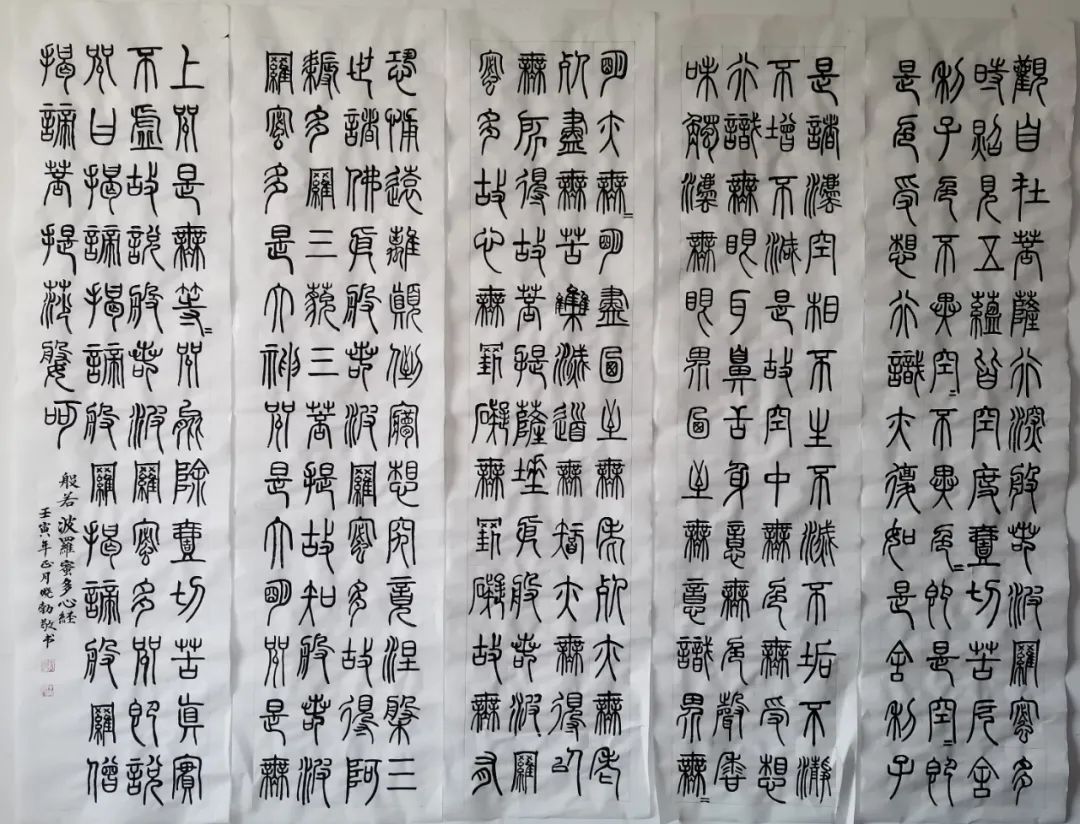 觀自在菩薩行深般若波羅蜜多
時照見五蘊皆空度壹切苦厄舍
利子色不異空〻不異色〻即是空〻即
是色受想行識亦復如是舍利子
是諸法空相不生不滅不垢不瀞
不增不減是故空中無色無受想
行識無眼耳鼻舌身意無色聲香
味觸法無眼界乃至無意識界無〻
明亦無〻明盡乃至無老死亦無老
死盡無苦集滅道無智亦無得以
無所得故菩提薩埵依般若波羅
蜜多故心無罣礙無罣礙故無有
恐怖遠離顛倒夢想究竟涅槃三
世諸佛依般若波羅蜜多故得阿
耨多羅三藐三菩提故知般若波
羅蜜多是大神咒是大明咒是無
上咒是無等〻咒能除壹切苦真實
不虛故說般若波羅蜜多咒即說
咒曰揭諦揭諦般羅揭諦般羅僧
揭諦菩提薩婆訶
般若波羅蜜多心经
壬寅年正月晓勃敬书